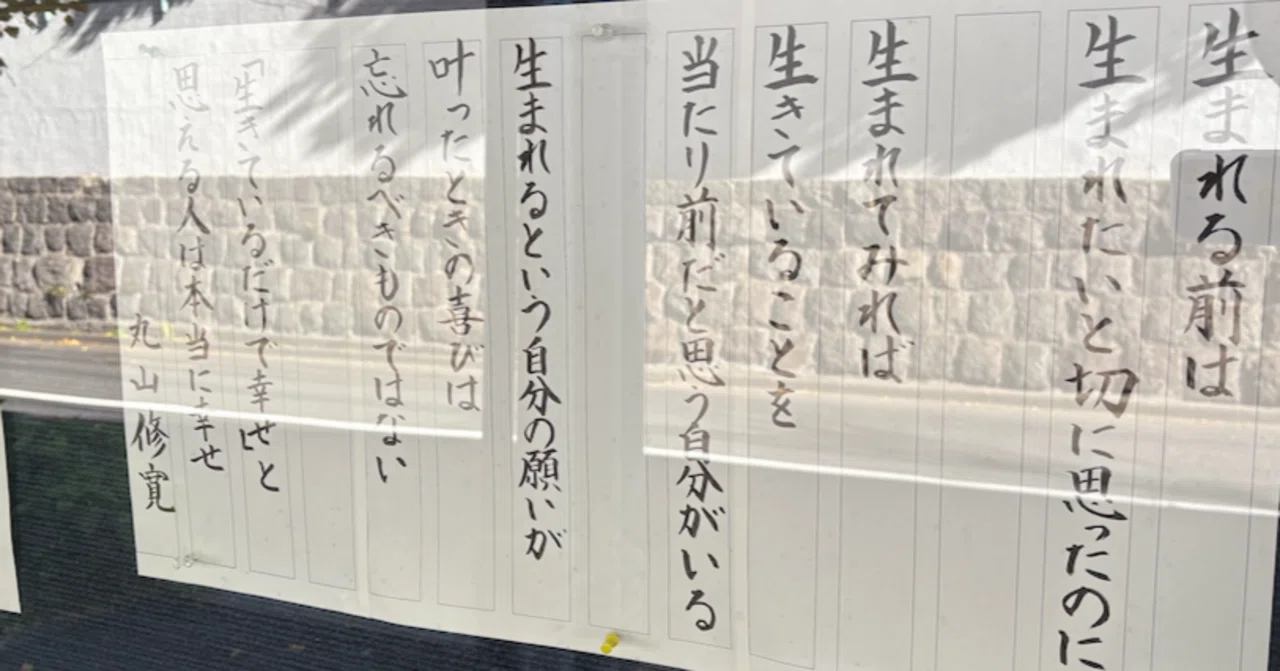 生まれる前は
生まれたいと切に思ったのに
生まれてみれば
生きていることを
当たり前だと思う自分がいる
生まれるという自分の願いが
叶ったときの喜びは
忘れるべきものではない
「生きているだけで幸せ」と
思える人は本当に幸せ
丸山修寛